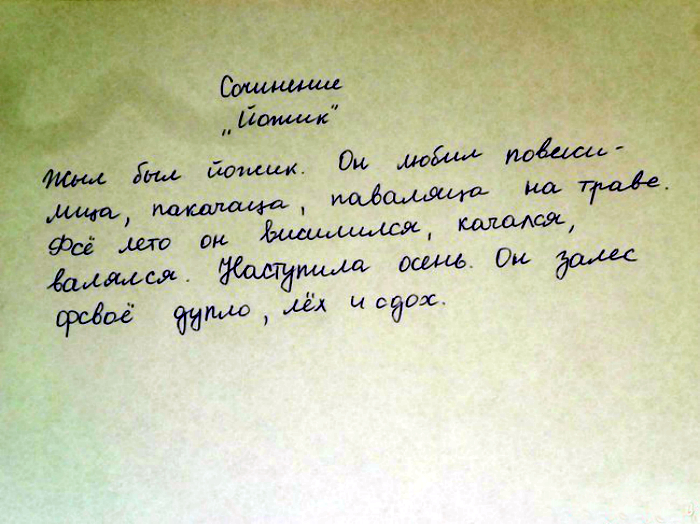 Сочинение
„Йожик"
Жыл был йожик. Он любил повеси-
лица, пакачаца, паваляца на траве.
Фсё лето он висилился, качался,
валялся. Наступила осень. Он залес
фсвоё дупло, лёх и сдох.